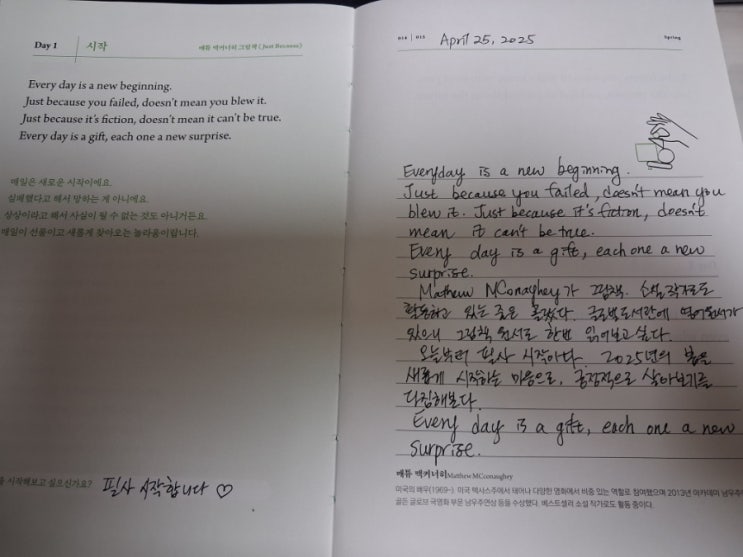 Day 1
시작
매튜 맥커너히 그림책 《Just Because》
Every day is a new beginning.
Just because you failed, doesn't mean you blew it.
Just because it's fiction, doesn't mean it can't be true.
Every day is a gift, each one a new surprise.
매일은 새로운 시작이에요.
실패했다고 해서 망하는 게 아니에요.
상상이라고 해서 사실이 될 수 없는 것도 아니거든요.
매일이 선물이고 새롭게 찾아오는 놀라움이랍니다.
시작해보고 싶으신가요?
필사 시작합니다 ♡
014 | 015
April 25, 2025
Spring
Everyday is a new beginning.
Just because you failed, doesn't mean you
blew it. Just because it's fiction, doesn't
mean it can't be true.
Every day is a gift, each one a new
surprise.
Mathew MConaghey가 그림책. 소설 작가로도
활동하고 있는 줄은 몰랐다. 글로벌도서관에 영어원서가
있으니 그림책 원서로 한번 읽어보고 싶다.
오늘부터 필사 시작이다. 2025년의 봄을
새롭게 시작하는 마음으로, 긍정적으로 살아보기를
다짐해본다.
Every day is a gift, each one a new
surprise.
매튜 맥커너히 Matthew MCconaughey
미국의 배우(1969~). 미국 텍사스주에서 태어나 다양한 영화에서 비중 있는 역할로 참여했으며 2013년 아카데미 남우주
골든 글로브 극영화 부문 남우주연상 등을 수상했다. 베스트셀러 소설 작가로도 활동 중이다.